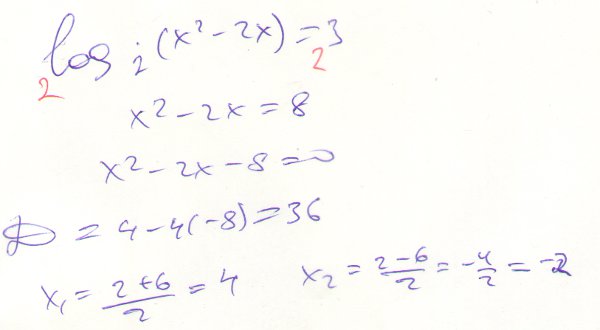 log₂(x² - 2x) = 3
2 2
x² - 2x = 8
x² - 2x - 8 = 0
D = 4 - 4(-8) = 36
x₁ = (2+6)/2 = 4 x₂ = (2-6)/2 = -4/2 = -2